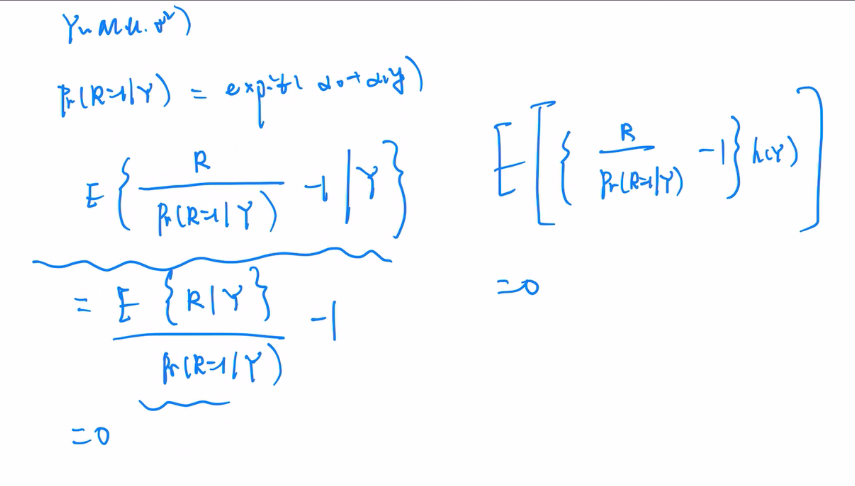 Y ~ N(μ, σ²)
Pr(R=1|Y) = expit(α₀+α₁y)
E { R / Pr(R=1|Y) -1 | Y }
= E {R|Y} / Pr(R=1|Y) -1
=0
E [ { R / Pr(R=1|Y) -1 } h(Y) ]
=0